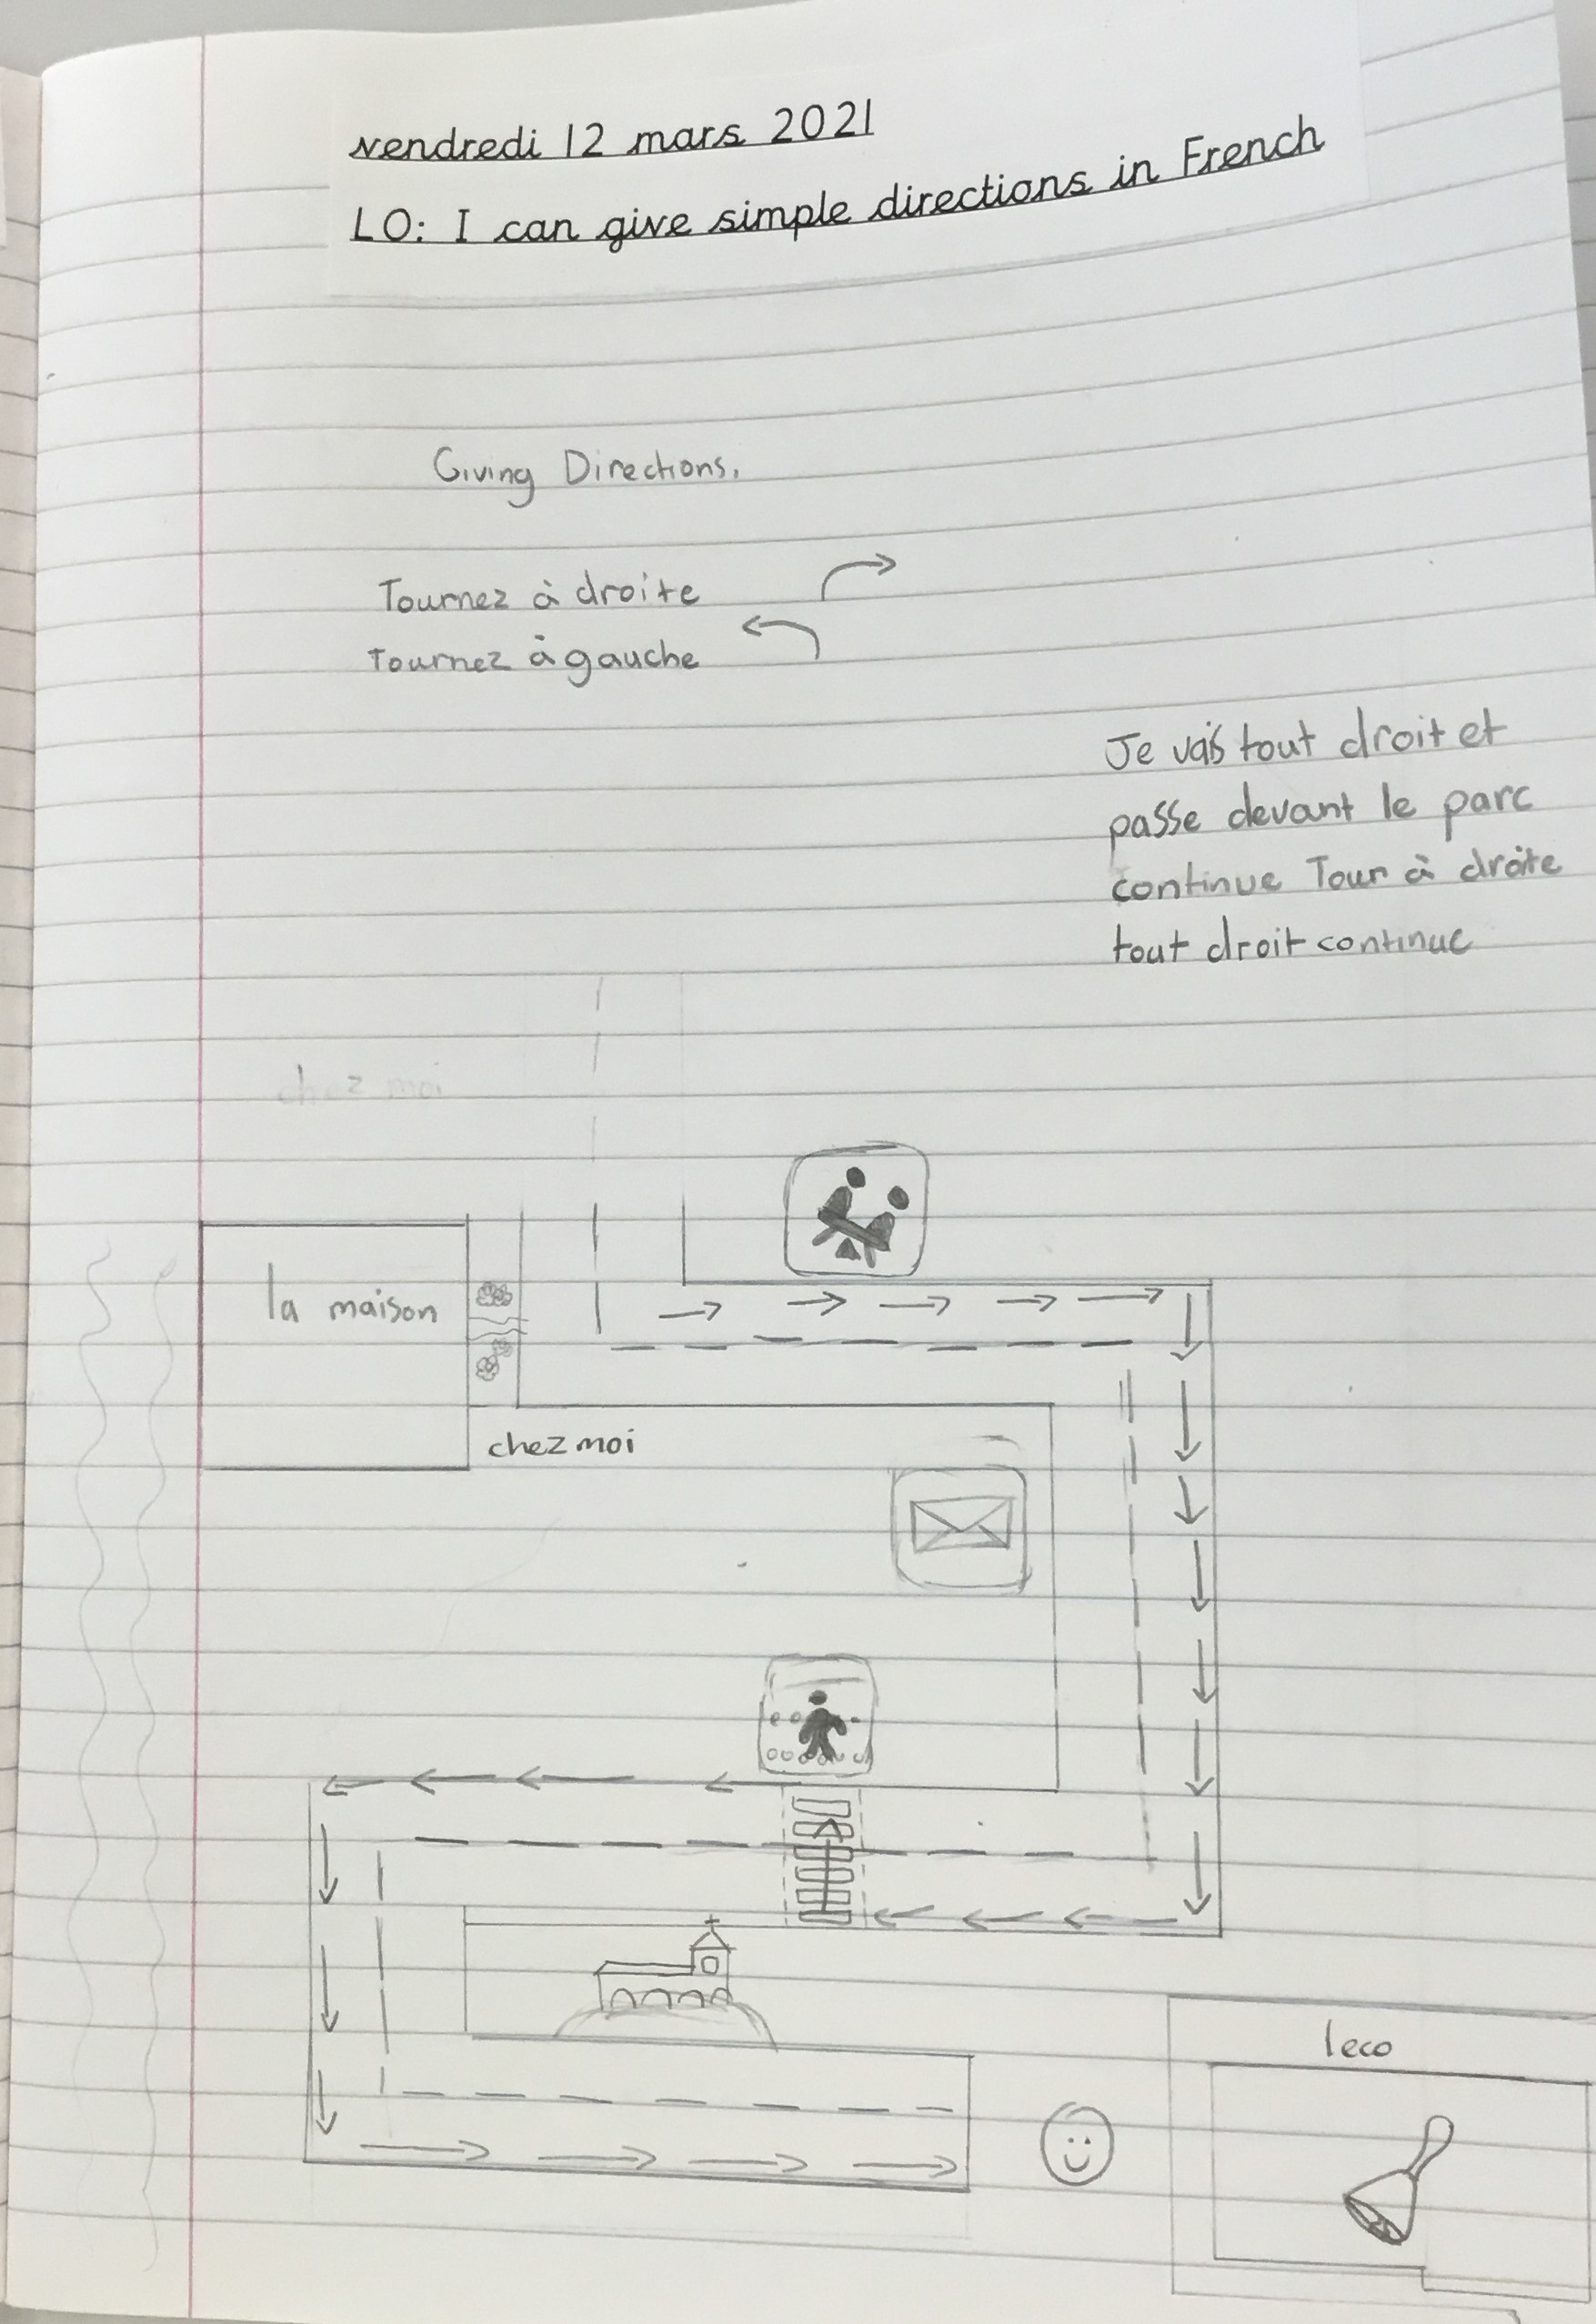 vendredi 12 mars 2021
LO: I can give simple directions in French
Giving Directions.
Tournez à droite
Tournez à gauche
Je vais tout droit et
passe devant le parc
continue Tour à droite
tout droit continue
chez moi
la maison
chez moi
leco